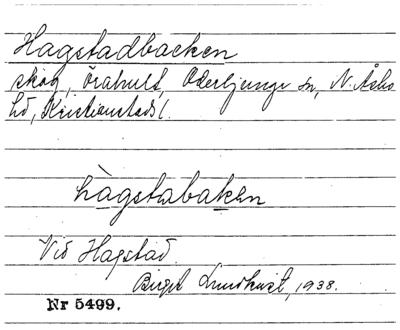 Hagstadbacken
skog, Örahult, Oderljunga sn, N. Åsbo
hd, Kristianstads l.
hàgstabaken
Vid Hagstad.
Birgit Lundkvist, 1938.
Nr 5499.